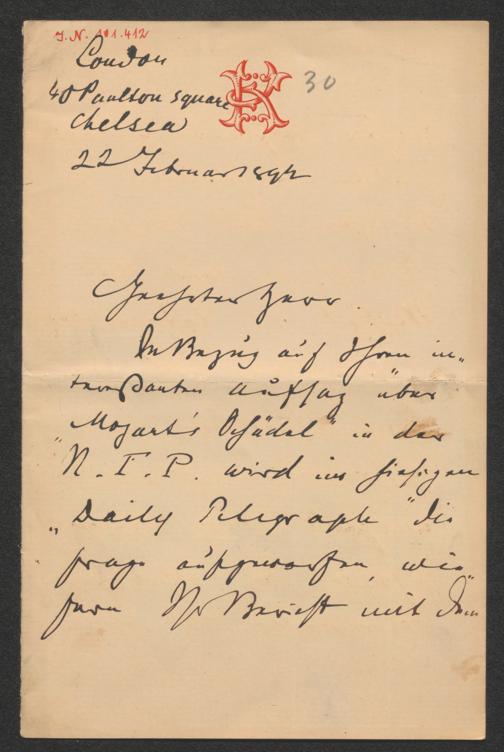 J. N. 101.412
London
40 Paulton Square
Chelsea
30
22 Februar 1892
Geehrter Herr
In Bezug auf Ihren in-
teressanten Aufsatz über
„Mozart's Schädel" in der
N. F. P. wird im hiesigen
„Daily Telegraph" die
Frage aufgeworfen, wie
fern Ihr Bericht mit dem